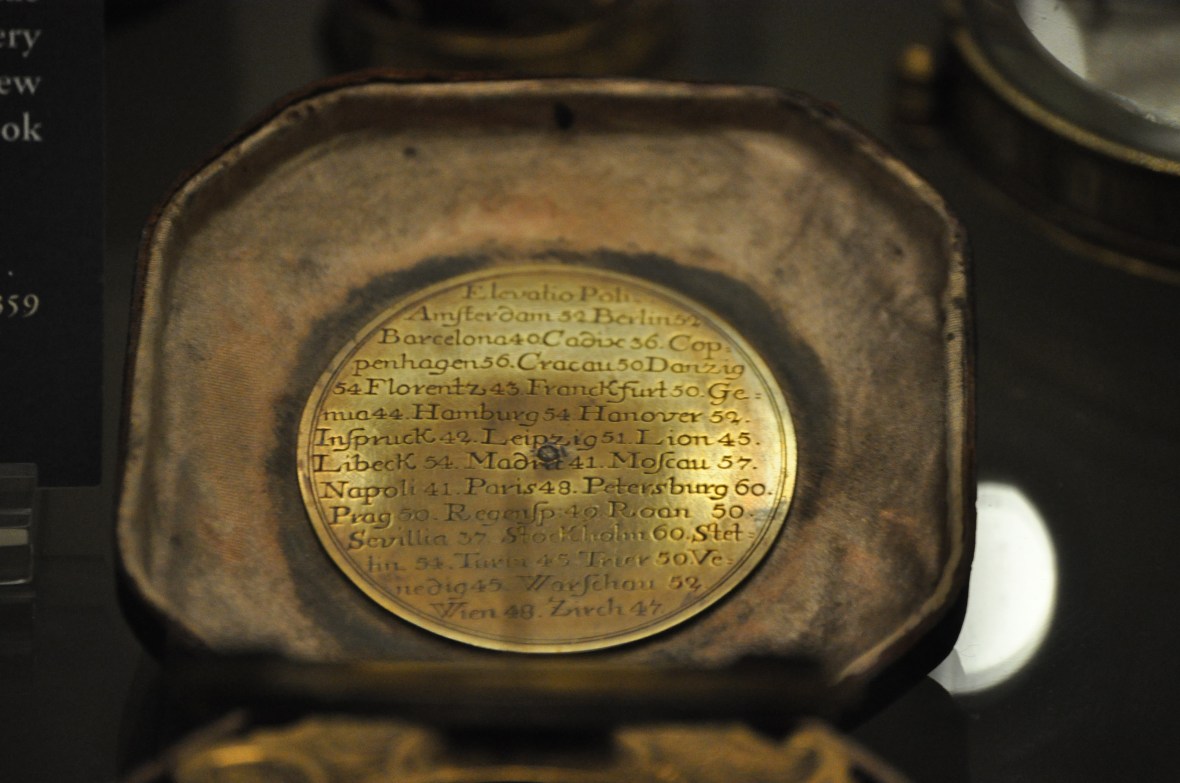 ery
ew
ok
.
359
Elevatio Poli.
Amſterdam 52 Berlin 52
Barcelona 40 Cadix 36. Cop
penhagen 56. Cracau 50 Danzig
54 Florentz 43. Franckfurt 50. Ge=
nua 44. Hamburg 54 Hanover 52.
Inſpruck 42. Leipzig 51. Lion 45.
Libeck 54. Madrit 41. Moſcau 57.
Napoli 41. Paris 48. Petersburg 60.
Prag 50. Regenſp. 49 Roan 50.
Sevillia 37. Stockholm 60. Stet=
tin. 54. Turin 45. Trier 50. Ve=
nedig 45. Warſchau 52
Wien 48. Zirch 47